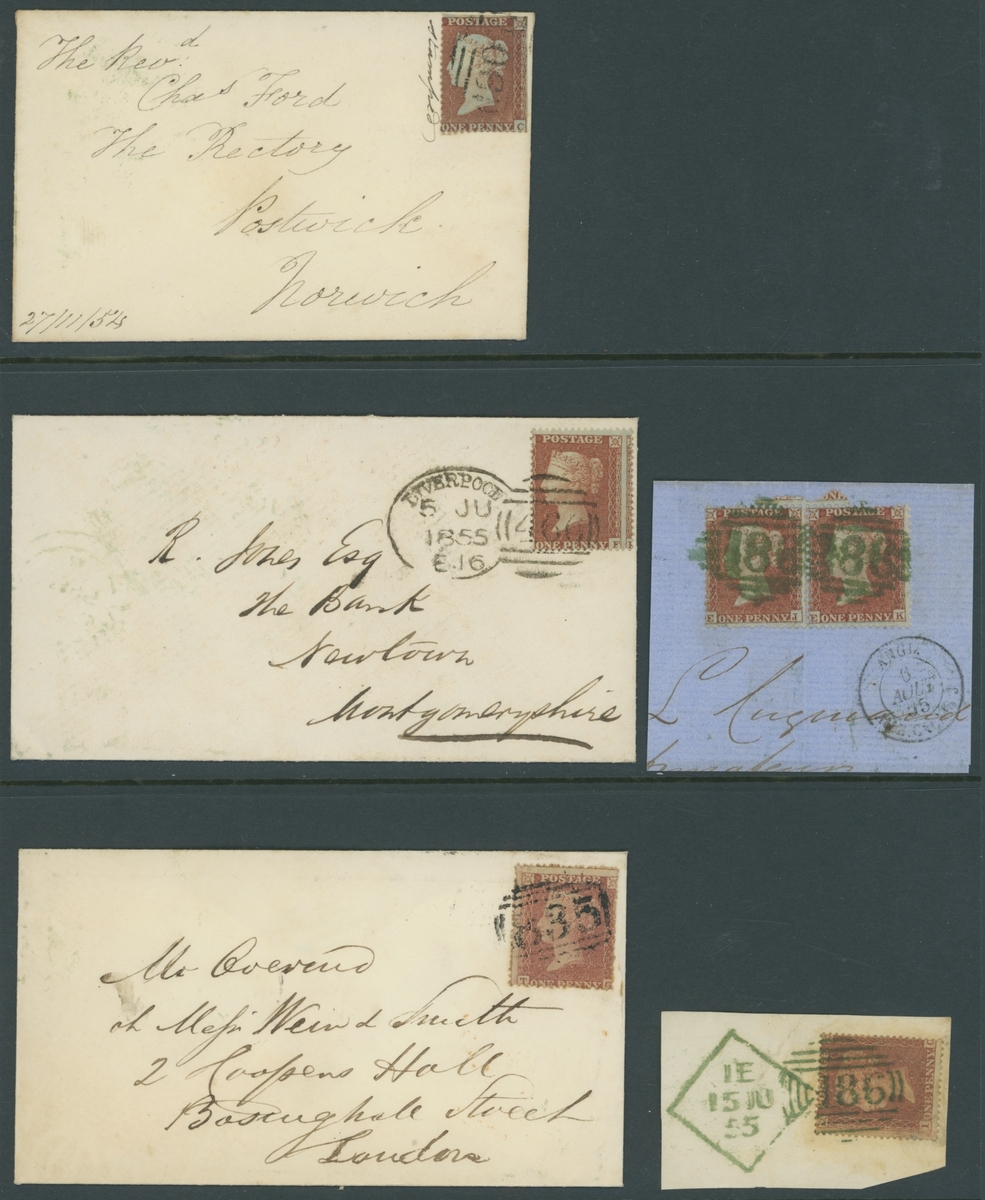 The Revd.
Chas Ford
The Rectory
Postwick
Norwich
27/11/54
stamped
POSTAGE
ONE PENNY C
R. Jones Esq
The Bank
Newtown
Montgomeryshire
LIVERPOOL
5 JU
1855
466
POSTAGE
ONE PENNY
POSTAGE
POSTAGE
186
186
E ONE PENNY J
E ONE PENNY K
ANGL.
6
AOUT
55
L
Mr Overend
at Messrs Weir & Smith
2 Coopers Hall
Basinghall Street
London
POSTAGE
635
T ONE PENNY
1E
15 JU
55
186